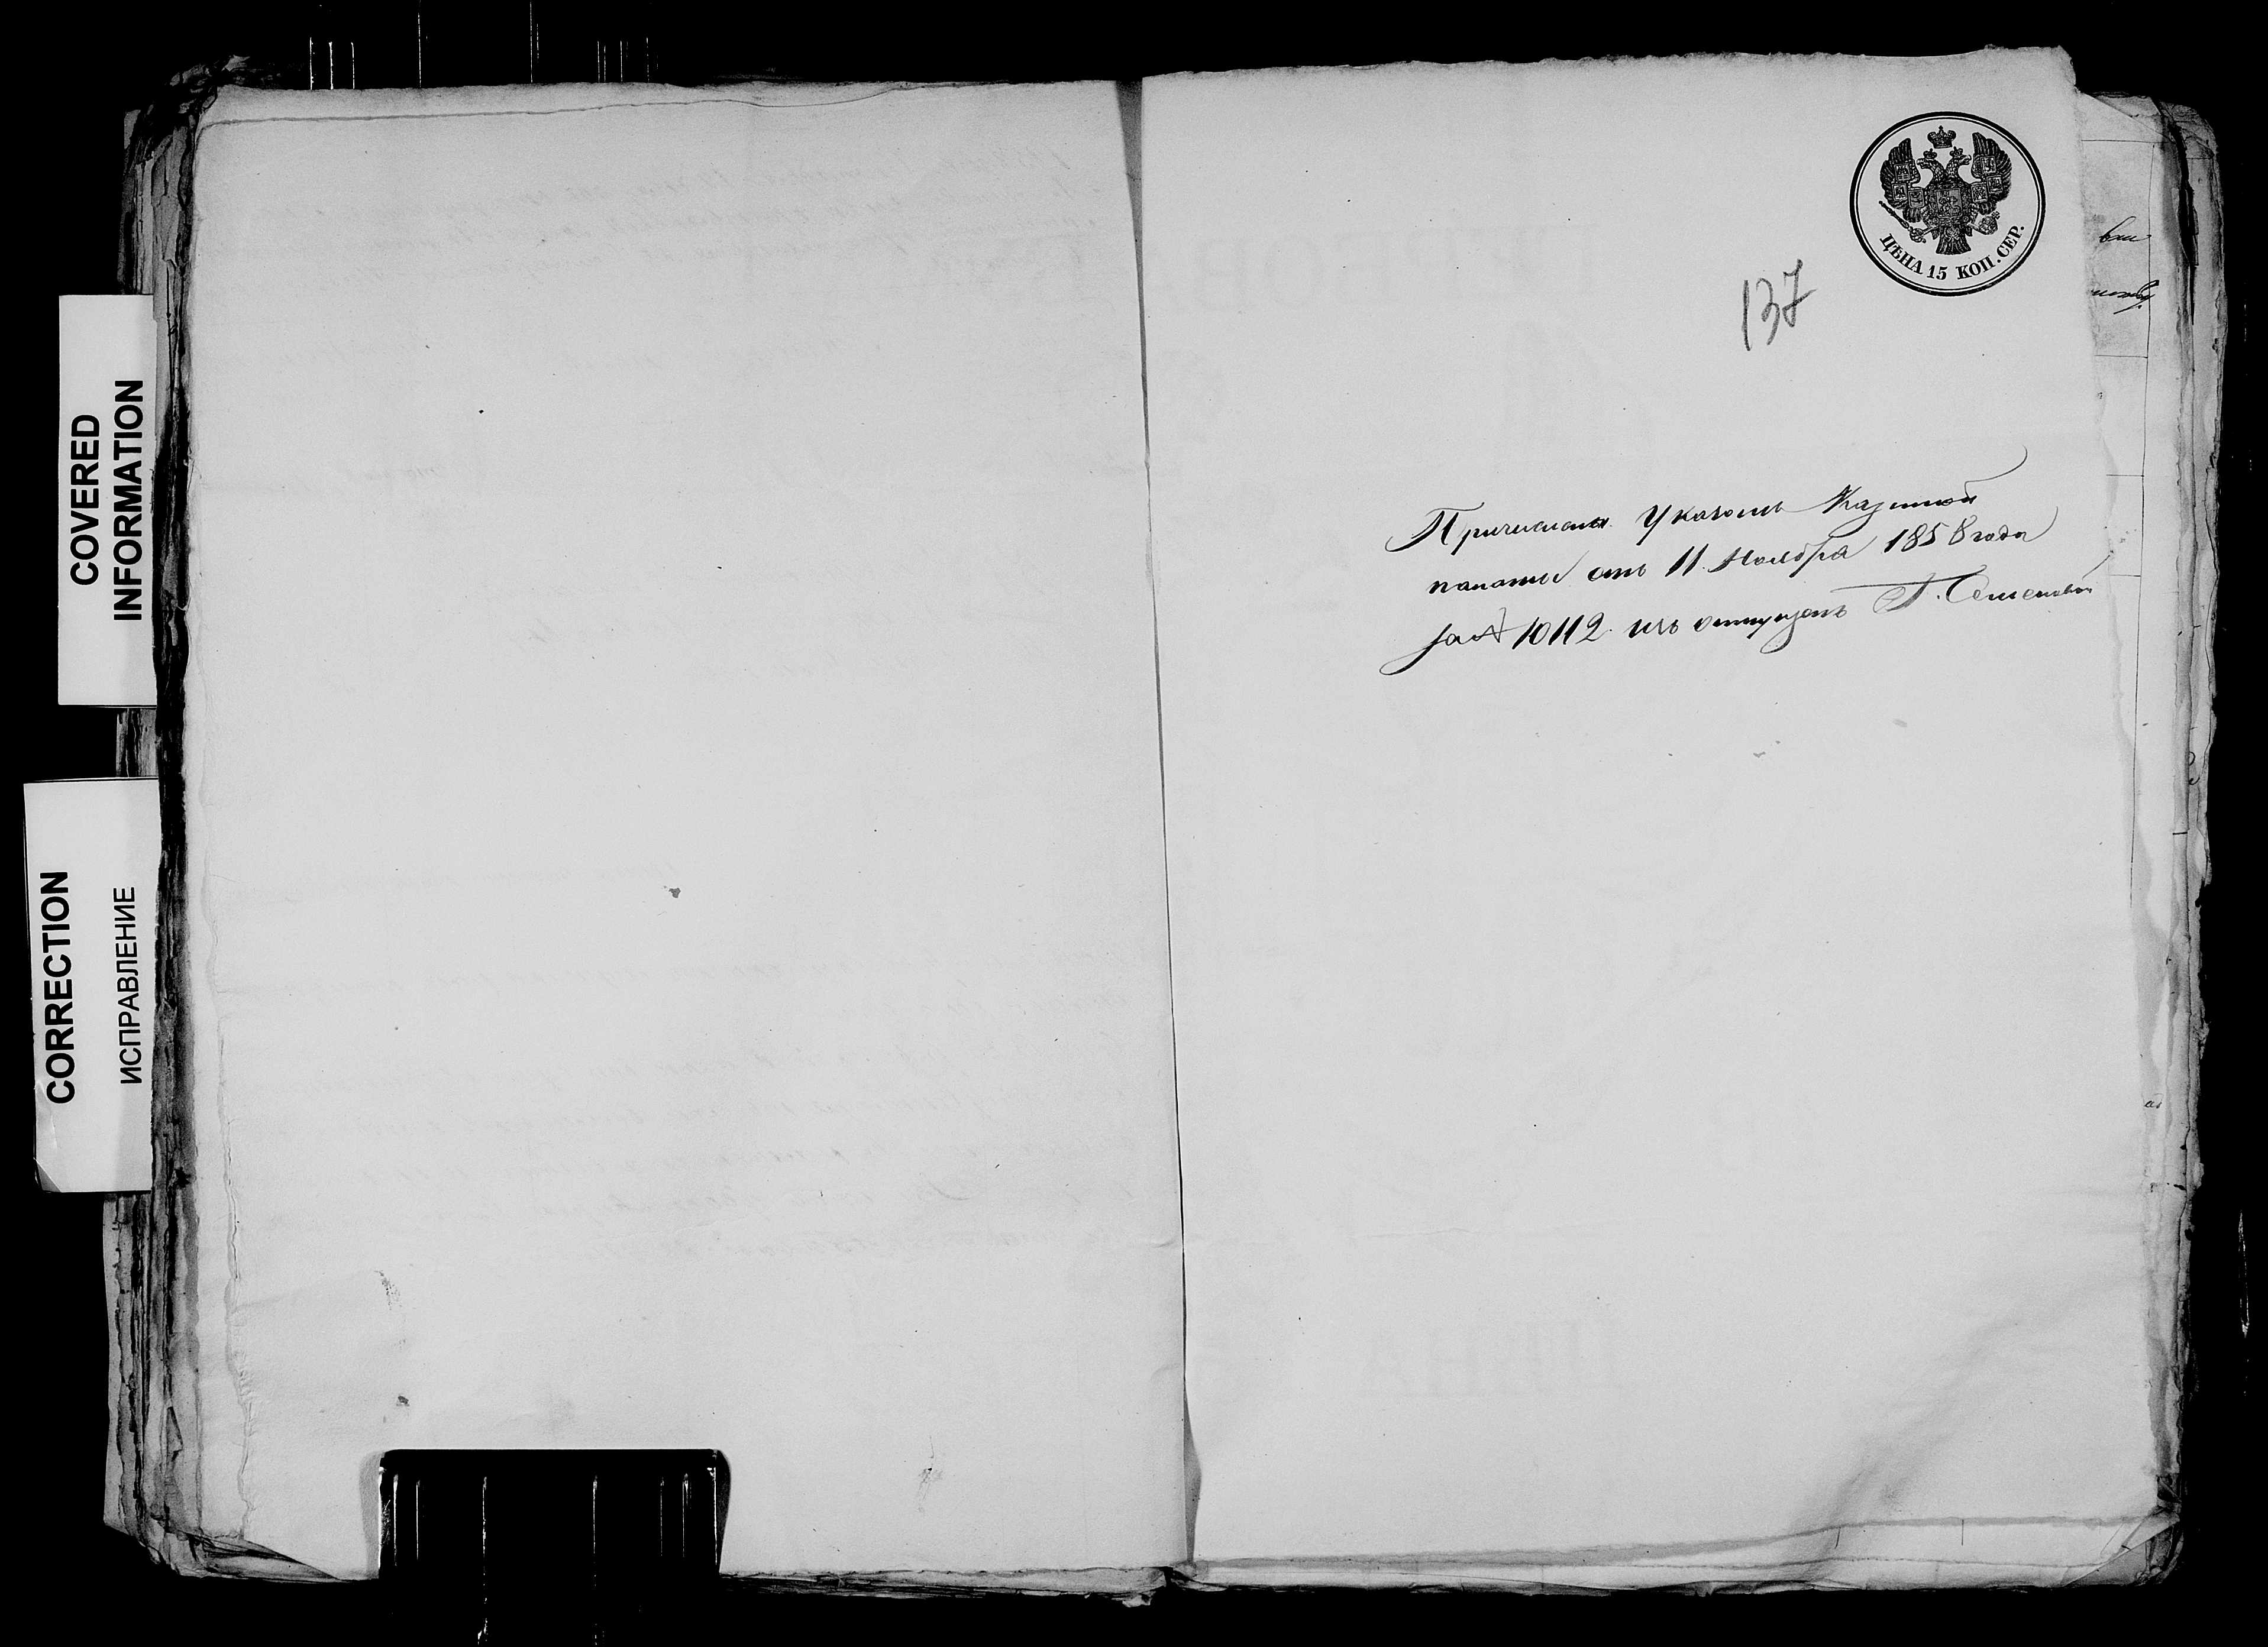 COVERED
INFORMATION
CORRECTION
ИСПРАВЛЕНИЕ
ЦѢНА 15 КОП. СЕР.
137
Причислены Указомъ Казенной
палаты отъ 11 Ноября 1858 года
за № 10112 изъ отпущен Г. Семеновой